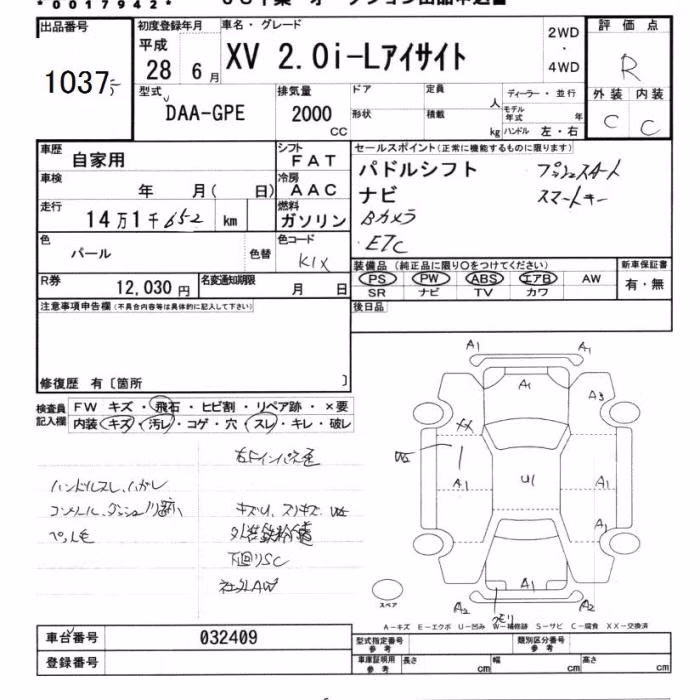 *0017942*
出品番号
1037
初度登録年月
平成
28 6月
車名・グレード
XV 2.0i-Lアイサイト
2WD
・
4WD
評価点
R
外装 内装
C C
型式
DAA-GPE
排気量
2000
CC
ドア
定員
人
形状
積載
kg
ディーラー・並行
モデル年式 年
ハンドル 左・右
車歴
自家用
シフト
FAT
車検
年 月( 日)
冷房
AAC
走行
14万1千652 km
燃料
ガソリン
色
パール
色替
色コード
K1X
R券
12,030円
名変通知期限
月 日
セールスポイント(正常に機能するものに限ります)
パドルシフト プッシュスタート
ナビ スマートキー
Bカメラ
ETC
装備品(純正品に限り○をつけてください)
PS PW ABS エアB AW
SR ナビ TV カワ
新車保証書
有・無
後日品
注意事項申告欄(不具合内容等は具体的に記入して下さい)
修復歴 有〔箇所 〕
検査員記入欄
FW キズ・飛石・ヒビ割・リペア跡・×要
内装 キズ・汚レ・コゲ・穴・スレ・キレ・破レ
ハンドルスレ、ハガレ
ペット毛
キズU、スリキズ
下廻りSC
社外AW
A1 A1
A1
A3
XX
A1
U1
A1
A1
A1
A2 A2
スペア
A-キズ E-エクボ U-凹み W-補修跡 S-サビ C-腐食 XX-交換済
車台番号
032409
登録番号
型式指定番号
参考
類別区分番号
参考
車庫証明用
参考
長さ cm
幅 cm
高さ cm